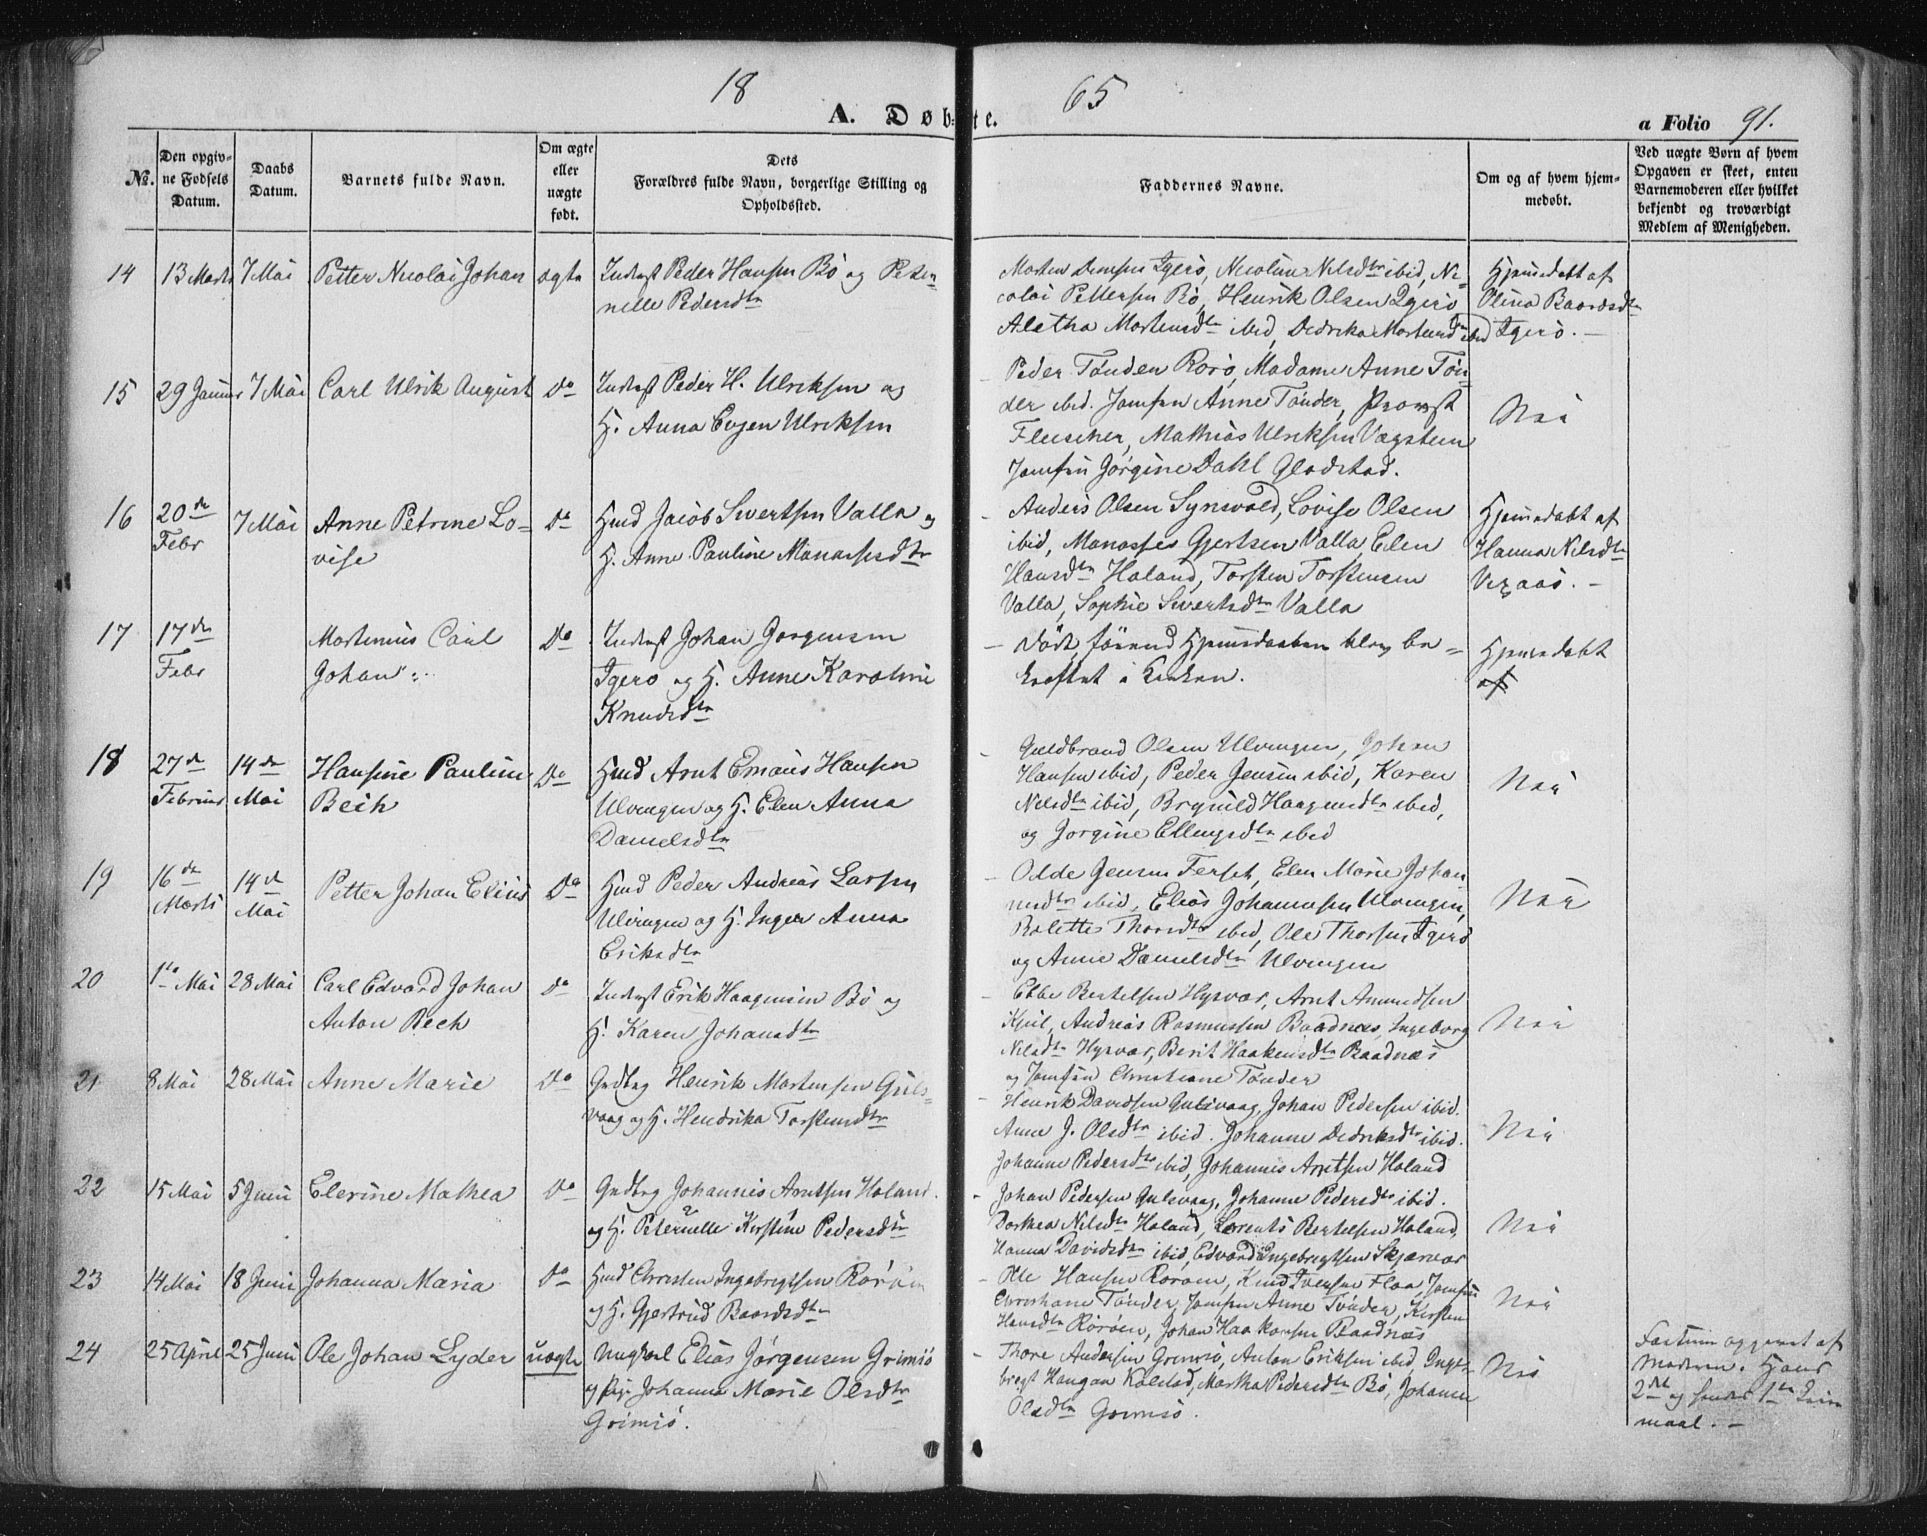 18 65
A. Døbte. a Folio 91.
№. Den opgivne Fødsels Datum. Daabs Datum. Barnets fulde Navn. Om ægte eller uægte født. Dets Forældres fulde Navn, borgerlige Stilling og Opholdssted. Faddernes Navne. Om og af hvem hjemmedøbt. Ved uægte Børn af hvem Opgaven er skeet, enten Barnemoderen eller hvilket bekjendt og troværdigt Medlem af Menigheden.
14 13 Marts 7 Mai Petter Nicolai Johan ægte Inderst Peder Hansen Bö og Peter-
nelle Pedersdtr
Morten Jensen Igerö, Nicoline Nilsdtr ibid, Ni-
colai Pettersen Bö, Henrik Olsen Igerö
Aletha Mortensdtr ibid, Dedrika Mortensdtr ibid
Hjemedøbt af
Olina Baardsdtr
Igerö. -
15 29 Januar 7 Mai Carl Ulrik August Do Inderst Peder H. Ulriksen og
H. Anna Evjen Ulriksen
Peder Tönder Rorö, Madame Anne Tön-
der ibid. Jomfru Anne Tönder, Provst
Fleischer, Mathias Ulriksen Vægsteen
Jomfru Jörgine Dahl Gladstad.
Nei
16 20de Febr 7 Mai Anne Petrine Lo-
vise
Do Hmd Jacob Sivertsen Valla og
H. Anne Pauline Manassesdtr
Anders Olsen Synsvold, Lovise Olsen
ibid, Manasses Gjertsen Valla, Elen
Hansdtr Haland, Torsten Torstensen
Valla, Sophie Sivertsdtr Valla
Hjemedøbt af
Hanna Nilsdtr
Vegaas. -
17 17de Febr Mortenius Carl
Johan
Do Inderst Johan Jorgensen
Igero og H. Anne Karoline
Knudsdtr
Död, förend Hjemedaaben blev be-
kræftet i Kirken.
Hjemedøbt
af
18 27de Februar 14de Mai Hansine Pauline
Bech
Do Hmd Arnt Emaus Hansen
Ulvingen og H. Elen Anna
Danielsdtr
Guldbrand Olsen Ulvingen, Johan
Hansen ibid, Peder Jensen ibid, Karen
Nilsdtr ibid, Brynild Haagensdtr ibid,
og Jorgine Ellingsdtr ibid
Nei
19 16de Marts 14de Mai Petter Johan Elius Do Hmd Peder Andreas Larsen
Ulvingen og H. Inger Anna
Eriksdtr
Olde Jensen Ferset, Elen Marie Johan-
nesdtr ibid, Elias Johannesen Ulvingen,
Rolette Thorsdtr ibid, Ole Thorsen Igerö
og Anne Danielsdtr Ulvingen
Nei
20 1te Mai 28 Mai Carl Edvard Johan
Anton Bech
Do Inderst Erik Haagensen Bö og
H. Karen Johansdtr
Ebbe Bertelsen Hysvær, Arnt Amundsen
Kjul, Andreas Rasmussen Baadnæs, Ingeborg
Nilsdtr Hysvær, Berit Haakensdtr Baadnæs
og Jomfru Christiane Tönder
Nei
21 8 Mai 28 Mai Anne Marie Do Gudbrg Henrik Mortensen Guls-
vaag og H. Hendrika Torstensdtr
Henrik Davidsen Gulsvaag, Johan Pedersen ibid.
Anna J. Olsdtr ibid. Johanne Dedriksdtr ibid.
Johanne Pedersdtr ibid, Johannes Arntsen Holand
Nei
22 15 Mai 5 Juni Elerine Mathea Do Gudbrg Johannes Arntsen Holand.
og H. Peternelle Kirstine Pedersdtr
Johan Pedersen Gulsvaag, Johanne Pedersdtr ibid.
Dorthea Nilsdtr Holand, Lorents Bertelsen Holand,
Hanna Davidsdtr ibid, Edvard Ingebrigtsen Skjærvær
Nei
23 14 Mai 18 Juni Johanna Maria Do Hmd Christen Ingebrigtsen Roröen
og H. Gjertrud Baardsdtr
Ole Hansen Roröen, Knud Iversen Floa, Jomfru
Christiane Tönder, Jomfru Anne Tönder, Kirsten
Hansdtr Roröen, Johan Haakensen Baadnæs
Nei
24 25 April 25 Juni Ole Johan Lyder uægte Ungkarl Elias Jørgensen Grimsö
og Pige Johanna Marie Olsdtr
Grimsö.
Thore Andersen Grimsö, Anton Eriksen ibid, Inge-
brigt Haugan Kolstad, Martha Pedersdtr Bö, Johanne
Olsdtr Grimsö.
Nei
Factum opgivet af
Moderen. Hans
2det og hendes 1te Leier-
maal. -